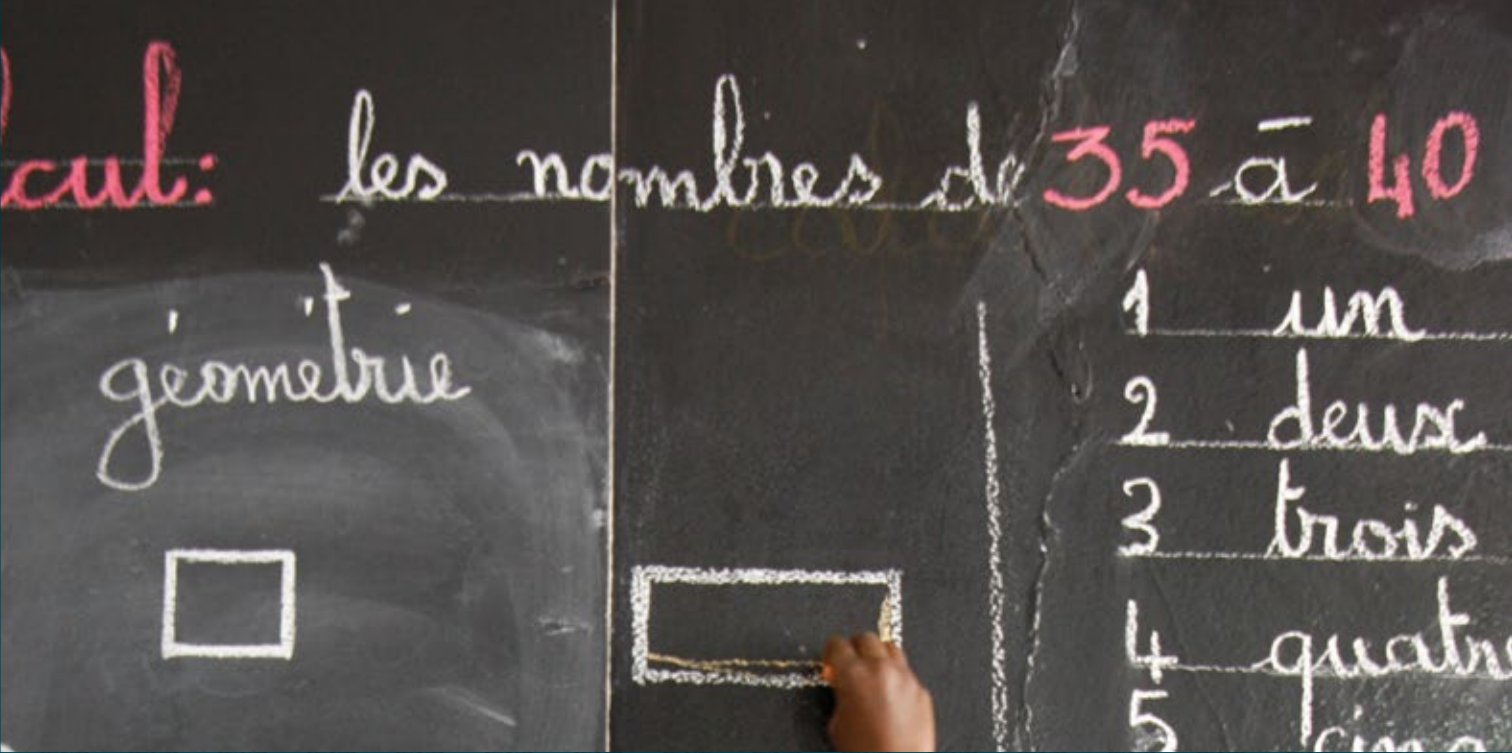 cul: les nombres de 35 à 40
géométrie
1 un
2 deux
3 trois
4 quatre
5 cinq